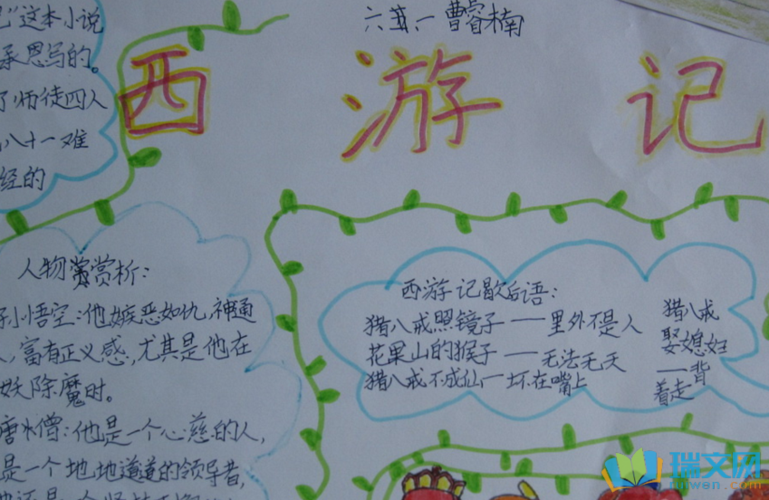 六 一 曹睿楠
西游记
”这本小说
承恩写的。
了师徒四人
八十一难
经的
人物赏析：
孙悟空：他嫉恶如仇,神通
富有正义感,尤其是他在
妖除魔时。
唐僧：他是一个心慈的人,
是一个地地道道的领导者,
西游记歇后语：
猪八戒照镜子——里外不是人
花果山的猴子——无法无天
猪八戒不成仙—坏在嘴上
猪八戒
娶媳妇
—背
着走
瑞文网